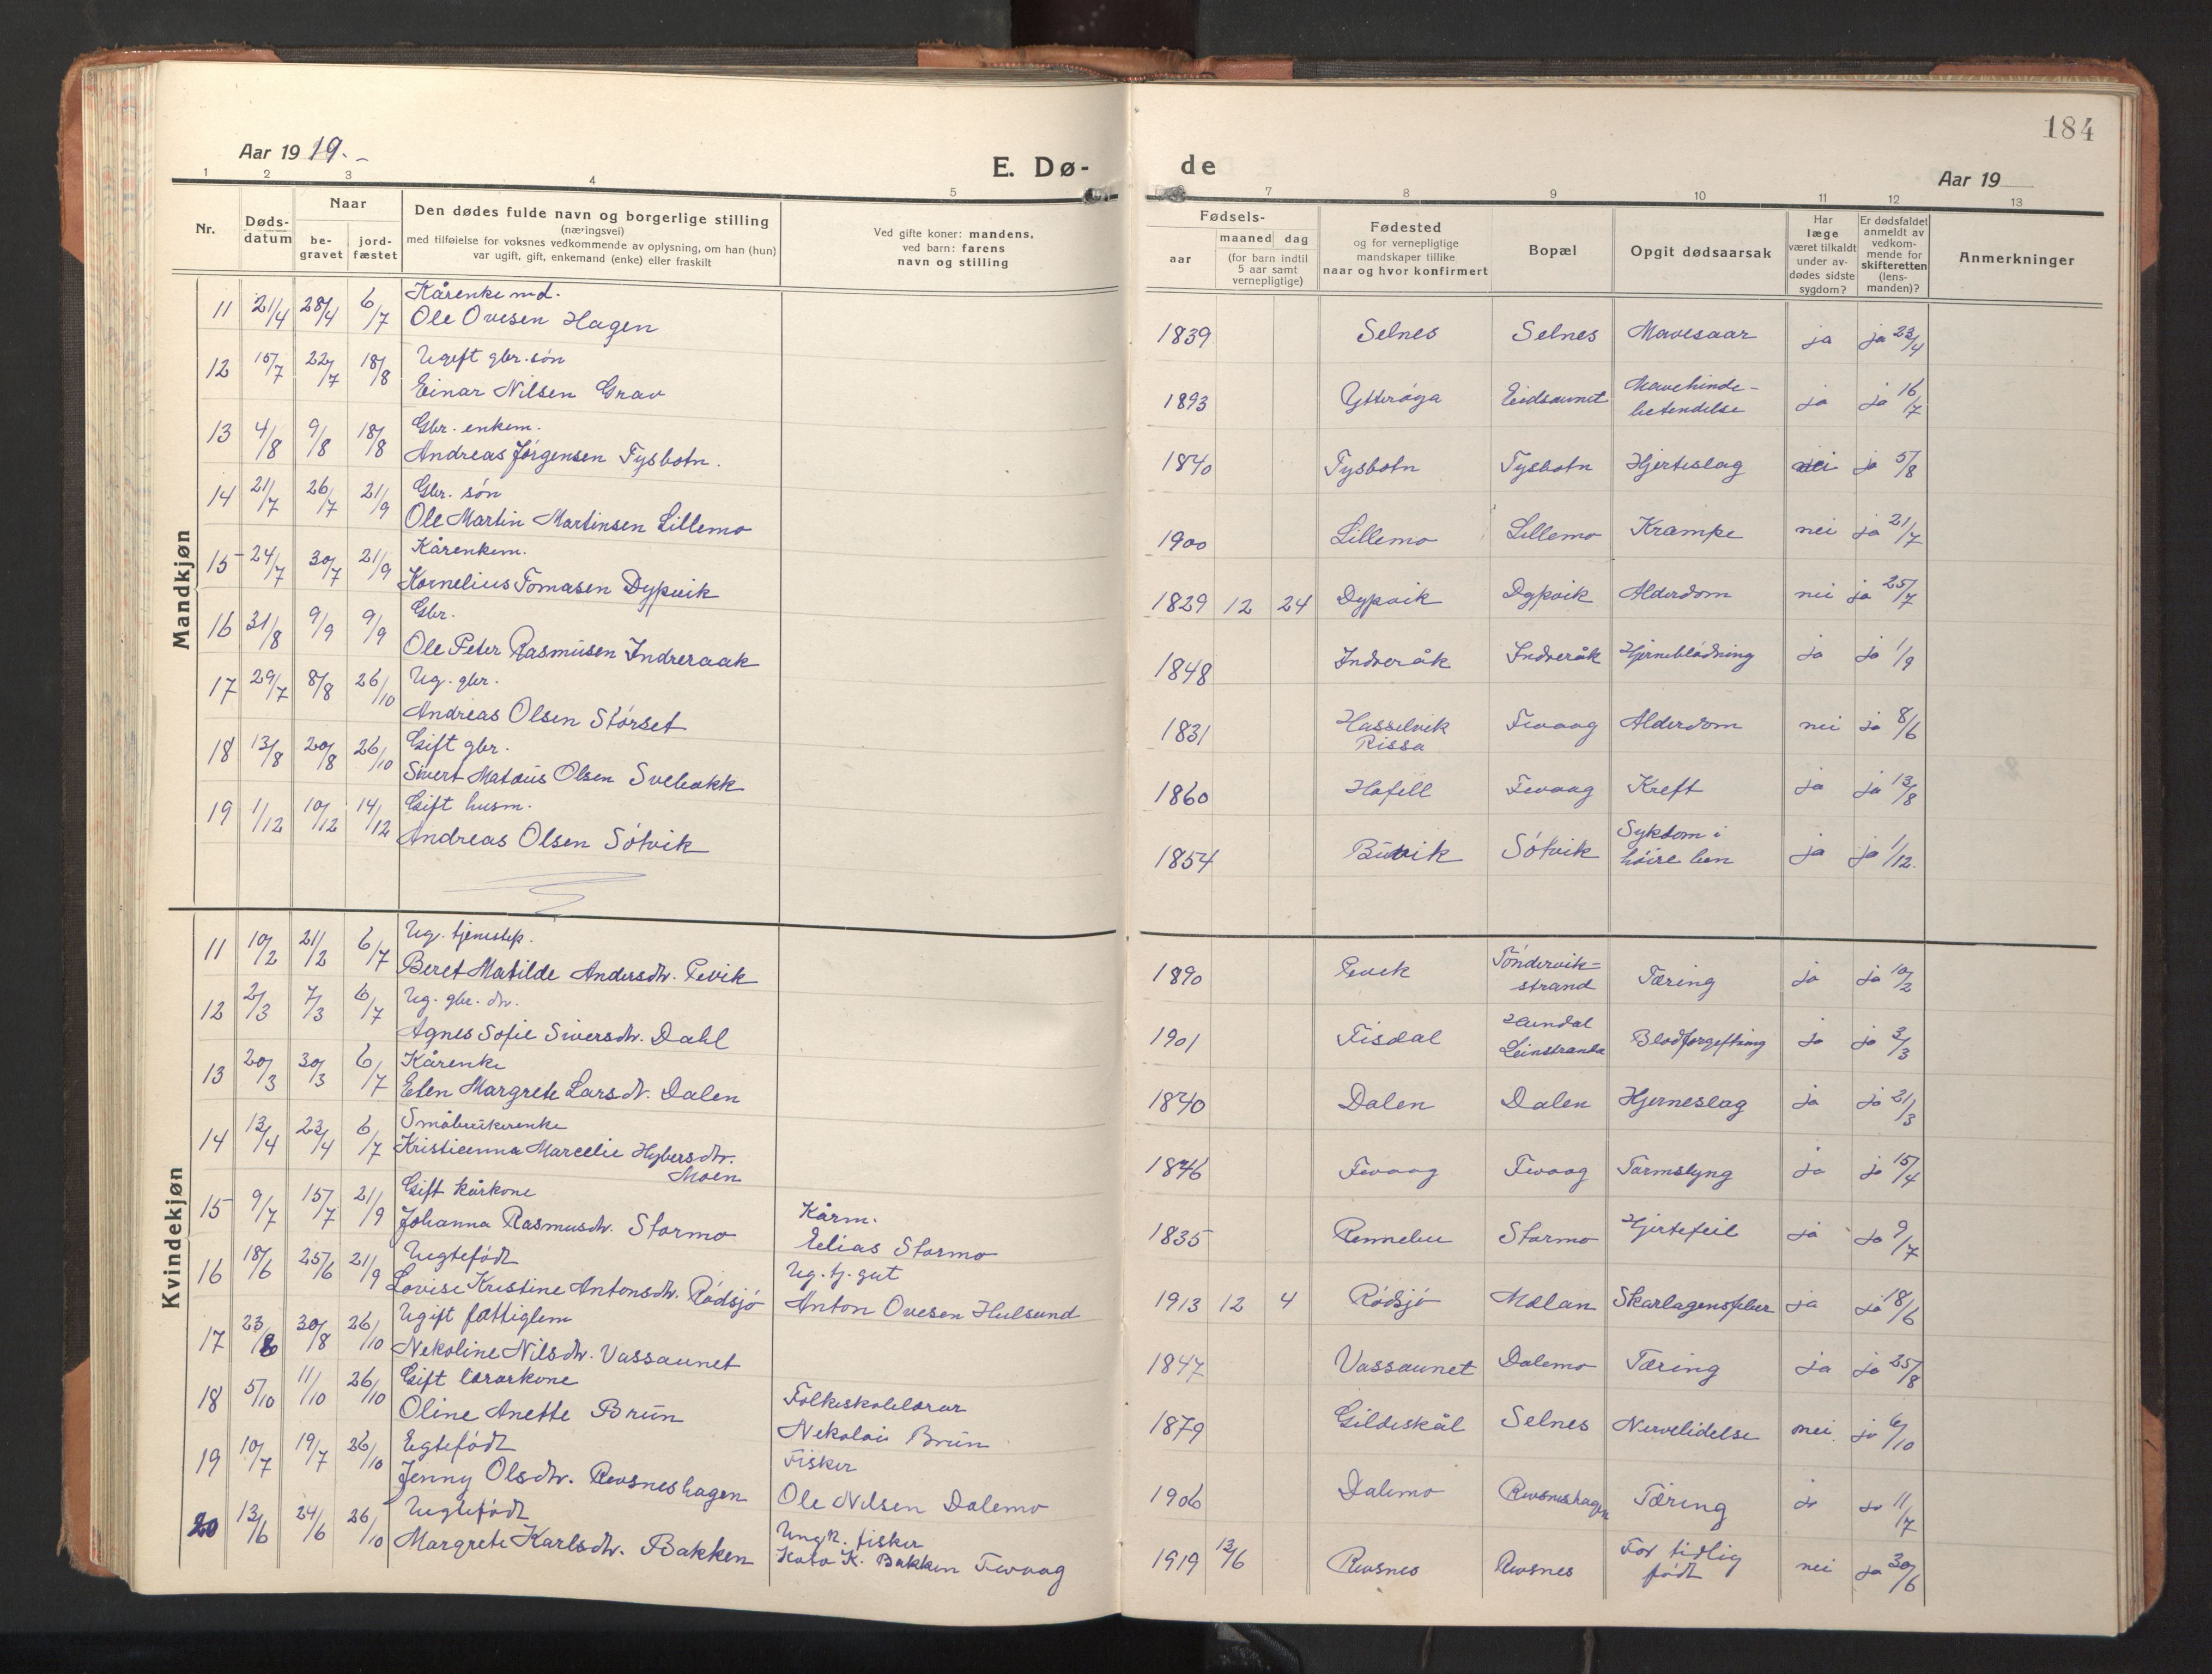 184
Aar 19 19.-
E. Dø-
de
Aar 19
1 2 3 4 5 7 8 9 10 11 12 13
Nr.
Døds-
datum
Naar
be-
gravet
jord-
fæstet
Den dødes fulde navn og borgerlige stilling
(næringsvei)
med tilføielse for voksnes vedkommende av oplysning, om han (hun)
var ugift, gift, enkemand (enke) eller fraskilt
Ved gifte koner: mandens,
ved barn: farens
navn og stilling
Fødsels-
aar
maaned dag
(for barn indtil
5 aar samt
vernepligtige)
Fødested
og for vernepligtige
mandskaper tillike
naar og hvor konfirmert
Bopæl
Opgit dødsaarsak
Har
læge
været tilkaldt
under av-
dødes sidste
sygdom?
Er dødsfaldet
anmeldt av
vedkom-
mende for
skifteretten
(lens-
manden)?
Anmerkninger
Mandkjøn
11 21/4 28/4 6/7 Kårenkemd.
Ole Ovesen Hagen
1839 Selnes Selnes Mavesaar ja ja 23/4
12 15/7 22/7 18/8 Ugift gbr. søn
Einar Nilsen Grav
1893 Ytterøya Eidsaunet Mavehinde-
betendelse ja ja 16/7
13 4/8 9/8 18/8 Gbr. enkem.
Andreas Jørgensen Tysbotn.
1840 Tysbotn Tysbotn Hjerteslag nei ja 5/8
14 21/7 26/7 21/9 Gbr. søn
Ole Martin Martinsen Lillemo
1900 Lillemo Lillemo Krampe nei ja 21/7
15 24/7 30/7 21/9 Kårenkem.
Kornelius Tomasen Dypvik
1829 12 24 Dypvik Dypvik Alderdom nei ja 25/7
16 31/8 9/9 9/9 Gbr.
Ole Peter Rasmusen Indreraak
1848 Indreråk Indreråk Hjerneblødning ja ja 1/9
17 29/7 8/8 26/10 Ug. gbr.
Andreas Olsen Størset
1831 Hasselvik
Rissa Fevaag Alderdom nei ja 8/6
18 13/8 20/8 26/10 Gift gbr.
Sivert Mateus Olsen Svebakk
1860 Hafell Fevaag Kreft ja ja 13/8
19 1/12 10/12 14/12 Gift husm.
Andreas Olsen Søtvik
1854 Buvik Søtvik Sykdom i
høire ben ja ja 1/12.
Kvindekjøn
11 10/2 21/2 6/7 Ug. tjenestep.
Beret Matilde Andersdtr. Pevik
1890 Pevik Tøndervik-
strand Tæring ja ja 10/2
12 2/3 7/3 6/7 Ug. gbr. dtr.
Agnes Sofie Siversdtr. Dahl
1901 Fisdal Hundal
Leinstranda Blodforgiftning ja ja 3/3
13 20/3 30/3 6/7 Kårenke
Elen Margrete Larsdtr. Dalen
1840 Dalen Dalen Hjerneslag ja ja 21/3
14 13/4 23/4 6/7 Småbrukerenke
Kristianna Marcelie Hybersdtr.
Moen
1846 Fevaag Fevaag Tarmslyng ja ja 15/4
15 9/7 15/7 21/9 Gift kårkone
Johanna Rasmusdtr. Stormo
Kårm.
Elias Stormo
1835 Rennebu Stormo Hjertefeil ja ja 9/7
16 18/6 25/6 21/9 Uegtefødt
Lovise Kristine Antonsdtr. Rødsjø
Ug. tj. gut
Anton Ovesen Hulsund
1913 12 4 Rødsjø Mælan Skarlagensfeber ja ja 18/6
17 23/8 30/8 26/10 Ugift fattiglem
Nekoline Nilsdtr. Vassaunet
1847 Vassaunet Dalemo Tæring ja ja 25/8
18 5/10 11/10 26/10 Gift lærarkone
Oline Anette Brun
Folkeskolelærar
Nekolai Brun
1879 Gildeskål Selnes Nervelidelse nei ja 6/10
19 10/7 19/7 26/10 Egtefødt
Jenny Olsdtr. Revsneshagen
Fisker
Ole Nilsen Dalemo
1906 Dalemo Revsneshagen Tæring ja ja 11/7
20 13/6 24/6 26/10 Uegtefødt
Margrete Karlsdtr. Bakken
Ungk. fisker
K. Bakken Fevaag
1919 13/6 Revsnes Revsnes For tidlig
født nei ja 30/6